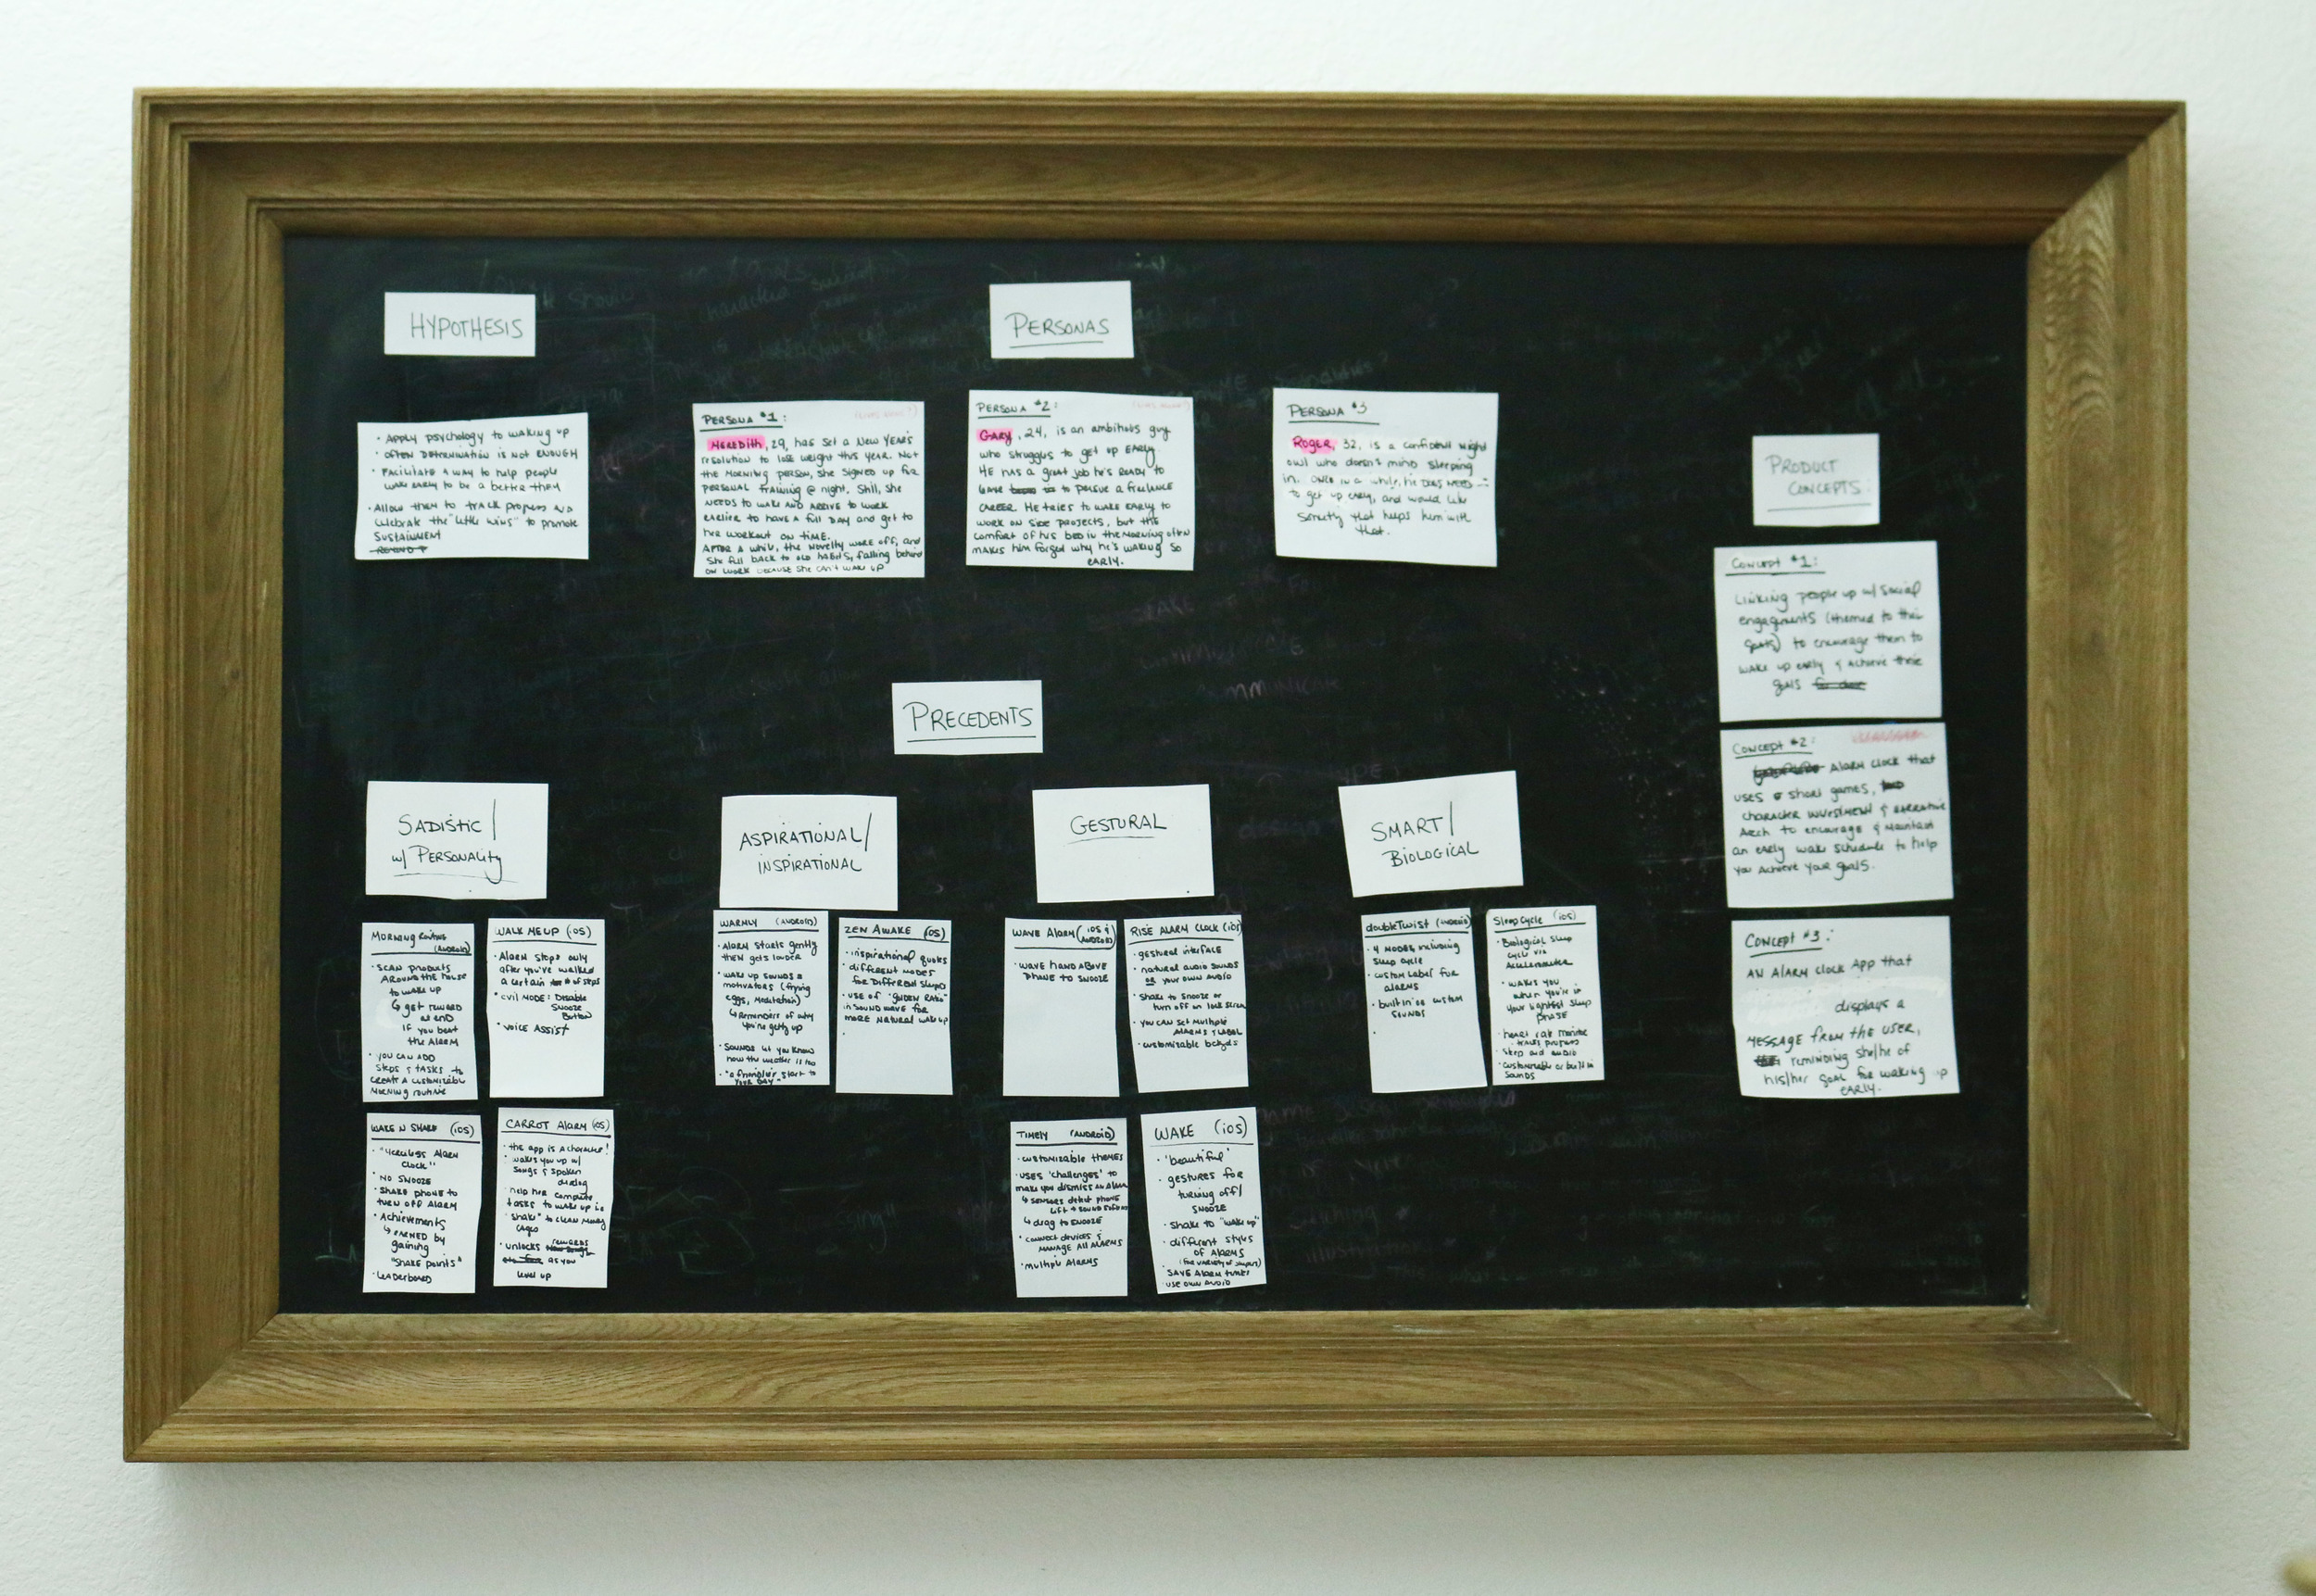 HYPOTHESIS
• APPLY psychology to WAKING UP
• OFTEN DETERMINATION is NOT ENOUGH
• FACILITATE A WAY to help people
WAKE EARLY to be a better them
• Allow them to track progress and
celebrate the "little wins" to promote
SUSTAINMENT
PERSONAS
PERSONA #1:
MEREDITH, 29, has set a NEW YEAR'S
resolution to lose weight this YEAR. Not
the MORNING PERSON, She SIGNED UP FOR
PERSONAL TRAINING @ night. Still, she
NEEDS to WAKE AND ARRIVE to WORK
EARLIER to have a full DAY and get to
her WORKOUT ON TIME.
AFTER A while, the Novelty WORE OFF, and
She fell BACK to OLD HABITS, falling behind
ON WORK because She CAN'T WAKE UP
PERSONA #2:
GARY, 24, is an ambitious guy
who struggles to get up EARLY.
HE HAS a great job he's READY to
leave to PERSUE a freelance
CAREER. He tries to WAKE EARLY to
WORK ON SIDE PROJECTS, but the
comfort of his BED in the MORNING often
MAKES him forget why he's WAKING SO
EARLY.
PERSONA #3
ROGER, 32, is a confident night
owl who doesn't mind sleeping
in. ONCE in a while, he DOES NEED
to get up EARLY, and would like
something that helps him with
that.
PRODUCT
CONCEPTS:
CONCEPT #1:
LINKING people up w/ Social
engagements (themed to their
goals) to encourage them to
WAKE UP EARLY & Achieve their
goals
CONCEPT #2:
ALARM CLOCK that
USES short games,
character INVESTMENT & NARRATIVE
Arch to encourage & Maintain
an early wake schedule to help
you Achieve Your goals.
CONCEPT #3:
AN ALARM CLOCK App that
displays a
MESSAGE FROM the USER,
reminding she/he of
his/her GOAL for waking up
EARLY.
PRECEDENTS
SADISTIC/
w/ PERSONALITY
MORNING Routine
(ANDROID)
• SCAN products
AROUND the house
to WAKE UP
↳ get REWARD
at end
if you beat
the ALARM
• YOU CAN ADD
Steps & TASKS to
CREATE A customizable
MORNING routine
WALK ME UP (iOS)
• ALARM Stops only
after you've walked
a certain # of steps
• EVIL MODE: Disable
SNOOZE
Button
• VOICE ASSIST
WAKE N SHAKE (iOS)
Clock"
NO SNOOZE
• SHAKE phone to
TURN OFF ALARM
• Achievements
↳ EARNED by
gaining
"Shake points"
• LEADERBOARD
CARROT ALARM (iOS)
• the app is a character!
• WAKES you up w/
SONGS & Spoken
dialog
• help her complete
tasks to wake up i.e
"shake" to CLEAN
cages
• UNLOCKS rewards
as you
level up
ASPIRATIONAL/
INSPIRATIONAL
WARMLY (ANDROID)
• ALARM starts gently
then gets louder
• WAKE UP SOUNDS &
motivators (frying
eggs, Meditation)
↳ Reminders of why
you're getting up
• SOUNDS let you know
how the weather is too
• "a friendlier start to
YOUR DAY"
ZEN AWAKE (iOS)
• inspirational quotes
• different MODES
for DIFFERENT sleeps
• USE of "GOLDEN RATIO"
in SOUND WAVE for
MORE NATURAL WAKE up
GESTURAL
WAVE ALARM (iOS &
ANDROID)
• WAVE hand ABOVE
PHONE to SNOOZE
RISE ALARM CLOCK (iOS)
• gestural interface
• natural audio SOUNDS
OR your own AUDIO
• Shake to SNOOZE or
turn off on lock screen
• YOU CAN Set MULTIPLE
ALARMS & LABEL
• customizable bckgds
TIMELY (ANDROID)
• CUSTOMIZABLE THEMES
• USES 'challenges' to
make you dismiss an alarm
↳ SENSORS detect phone
↳ drag to SNOOZE
• connect devices &
MANAGE ALL ALARMS
• multiple ALARMS
WAKE (iOS)
• 'beautiful'
• gestures for
turning off/
SNOOZE
• Shake to "wake up"
• different styles
of ALARMS
(for variety of sleepers)
SAVE ALARM tunes
• USE OWN AUDIO
SMART/
BIOLOGICAL
doubleTwist (ANDROID)
• 4 MODES, including
sleep cycle
• custom LABEL FOR
alarms
• built in or custom
SOUNDS
SleepCycle (iOS)
• Biological sleep
cycle via
Accelerometer
• WAKES YOU
when you're in
your lightest sleep
PHASE
• heart rate monitor
• track progress
• sleep aid audio
• customizable or built in
SOUNDS